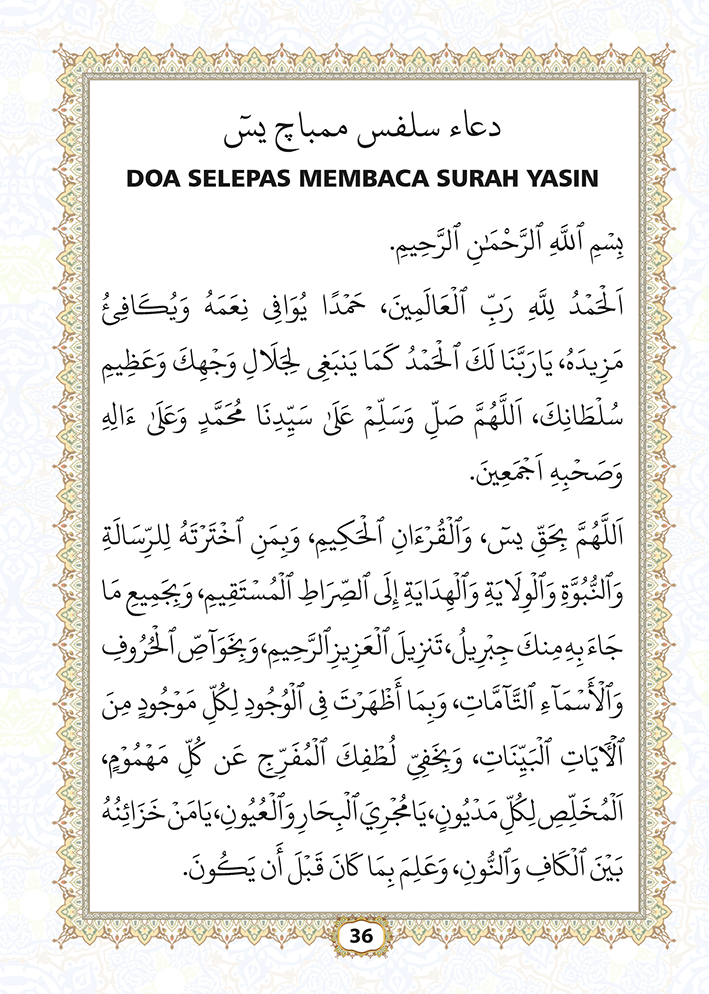 دعاء سلفس ممباچ يسٓ
DOA SELEPAS MEMBACA SURAH YASIN
بِسْمِ ٱللَّهِ ٱلرَّحْمَـٰنِ ٱلرَّحِيمِ.
اَلْحَمْدُ لِلَّهِ رَبِّ ٱلْعَالَمِينَ، حَمْدًا يُوَافِى نِعَمَهُ وَيُكَافِئُ
مَزِيدَهُ، يَارَبَّنَا لَكَ ٱلْحَمْدُ كَمَا يَنبَغِى لِجَلَالِ وَجْهِكَ وَعَظِيمِ
سُلْطَانِكَ، اَللَّهُمَّ صَلِّ وَسَلِّمْ عَلَىٰ سَيِّدِنَا مُحَمَّدٍ وَعَلَىٰ ءَالِهِ
وَصَحْبِهِ اَجْمَعِينَ.
اَللَّهُمَّ بِحَقِّ يسٓ، وَٱلْقُرْءَانِ ٱلْحَكِيمِ، وَبِمَنِ ٱخْتَرْتَهُ لِلرِّسَالَةِ
وَٱلنُّبُوَّةِ وَٱلْوِلَايَةِ وَٱلْهِدَايَةِ إِلَى ٱلصِّرَاطِ ٱلْمُسْتَقِيمِ، وَبِجَمِيعِ مَا
جَاءَ بِهِ مِنكَ جِبْرِيلُ، تَنزِيلَ ٱلْعَزِيزِ ٱلرَّحِيمِ، وَبِخَوَآصِّ ٱلْحُرُوفِ
وَٱلْأَسْمَآءِ ٱلتَّآمَّاتِ، وَبِمَا أَظْهَرْتَ فِى ٱلْوُجُودِ لِكُلِّ مَوْجُودٍ مِنَ
ٱلْأَيَاتِ ٱلْبَيِّنَاتِ، وَبِخَفِيِّ لُطْفِكَ ٱلْمُفَرِّجِ عَن كُلِّ مَهْمُوْمٍ،
اَلْمُخَلِّصِ لِكُلِّ مَدْيُونٍ، يَا مُجْرِيَ ٱلْبِحَارِ وَٱلْعُيُونِ، يَا مَنْ خَزَائِنُهُ
بَيْنَ ٱلْكَافِ وَٱلنُّونِ، وَعَلِمَ بِمَا كَانَ قَبْلَ أَن يَكُونَ.
36